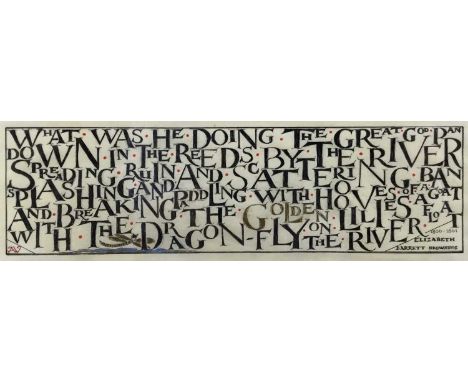 WHAT · WAS · HE · DOING · THE · GREAT · GOD · PAN
DOWN · IN · THE · REEDS · BY · THE · RIVER
SPREADING · RUIN · AND · SCATTERING · BAN
SPLASHING · AND · PADDLING · WITH · HOOVES · OF · A · GOAT
AND · BREAKING · THE · GOLDEN · LILIES · AFLOAT
WITH · THE · DRAGON-FLY · ON · THE · RIVER ·
ELIZABETH
BARRETT BROWNING